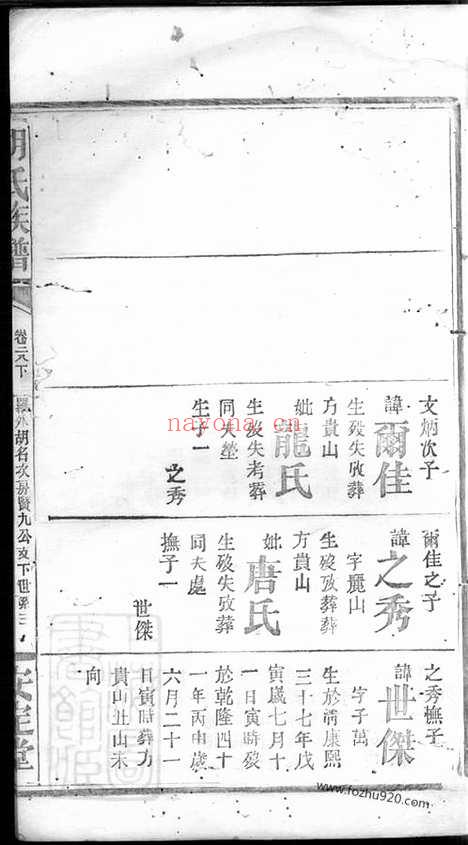 胡氏族譜
卷二八下
胡名次房賢九公支下世系
安定堂
文炳次子
諱爾佳
生歿失攷葬
方貴山
妣龍氏
生歿失考葬
同夫塋
生子一
之秀
爾佳之子
諱之秀
字麗山
生歿失攷葬
方貴山
妣唐氏
生歿失攷葬
同夫處
撫子一
世傑
之秀撫子
諱世傑
字子萬
生於清康熙
三十七年戊
寅歲七月十
一日寅時歿
於乾隆四十
一年丙申歲
六月二十一
日寅時葬方
貴山丑山未
向
nayona.cn
www.fozhu920.com